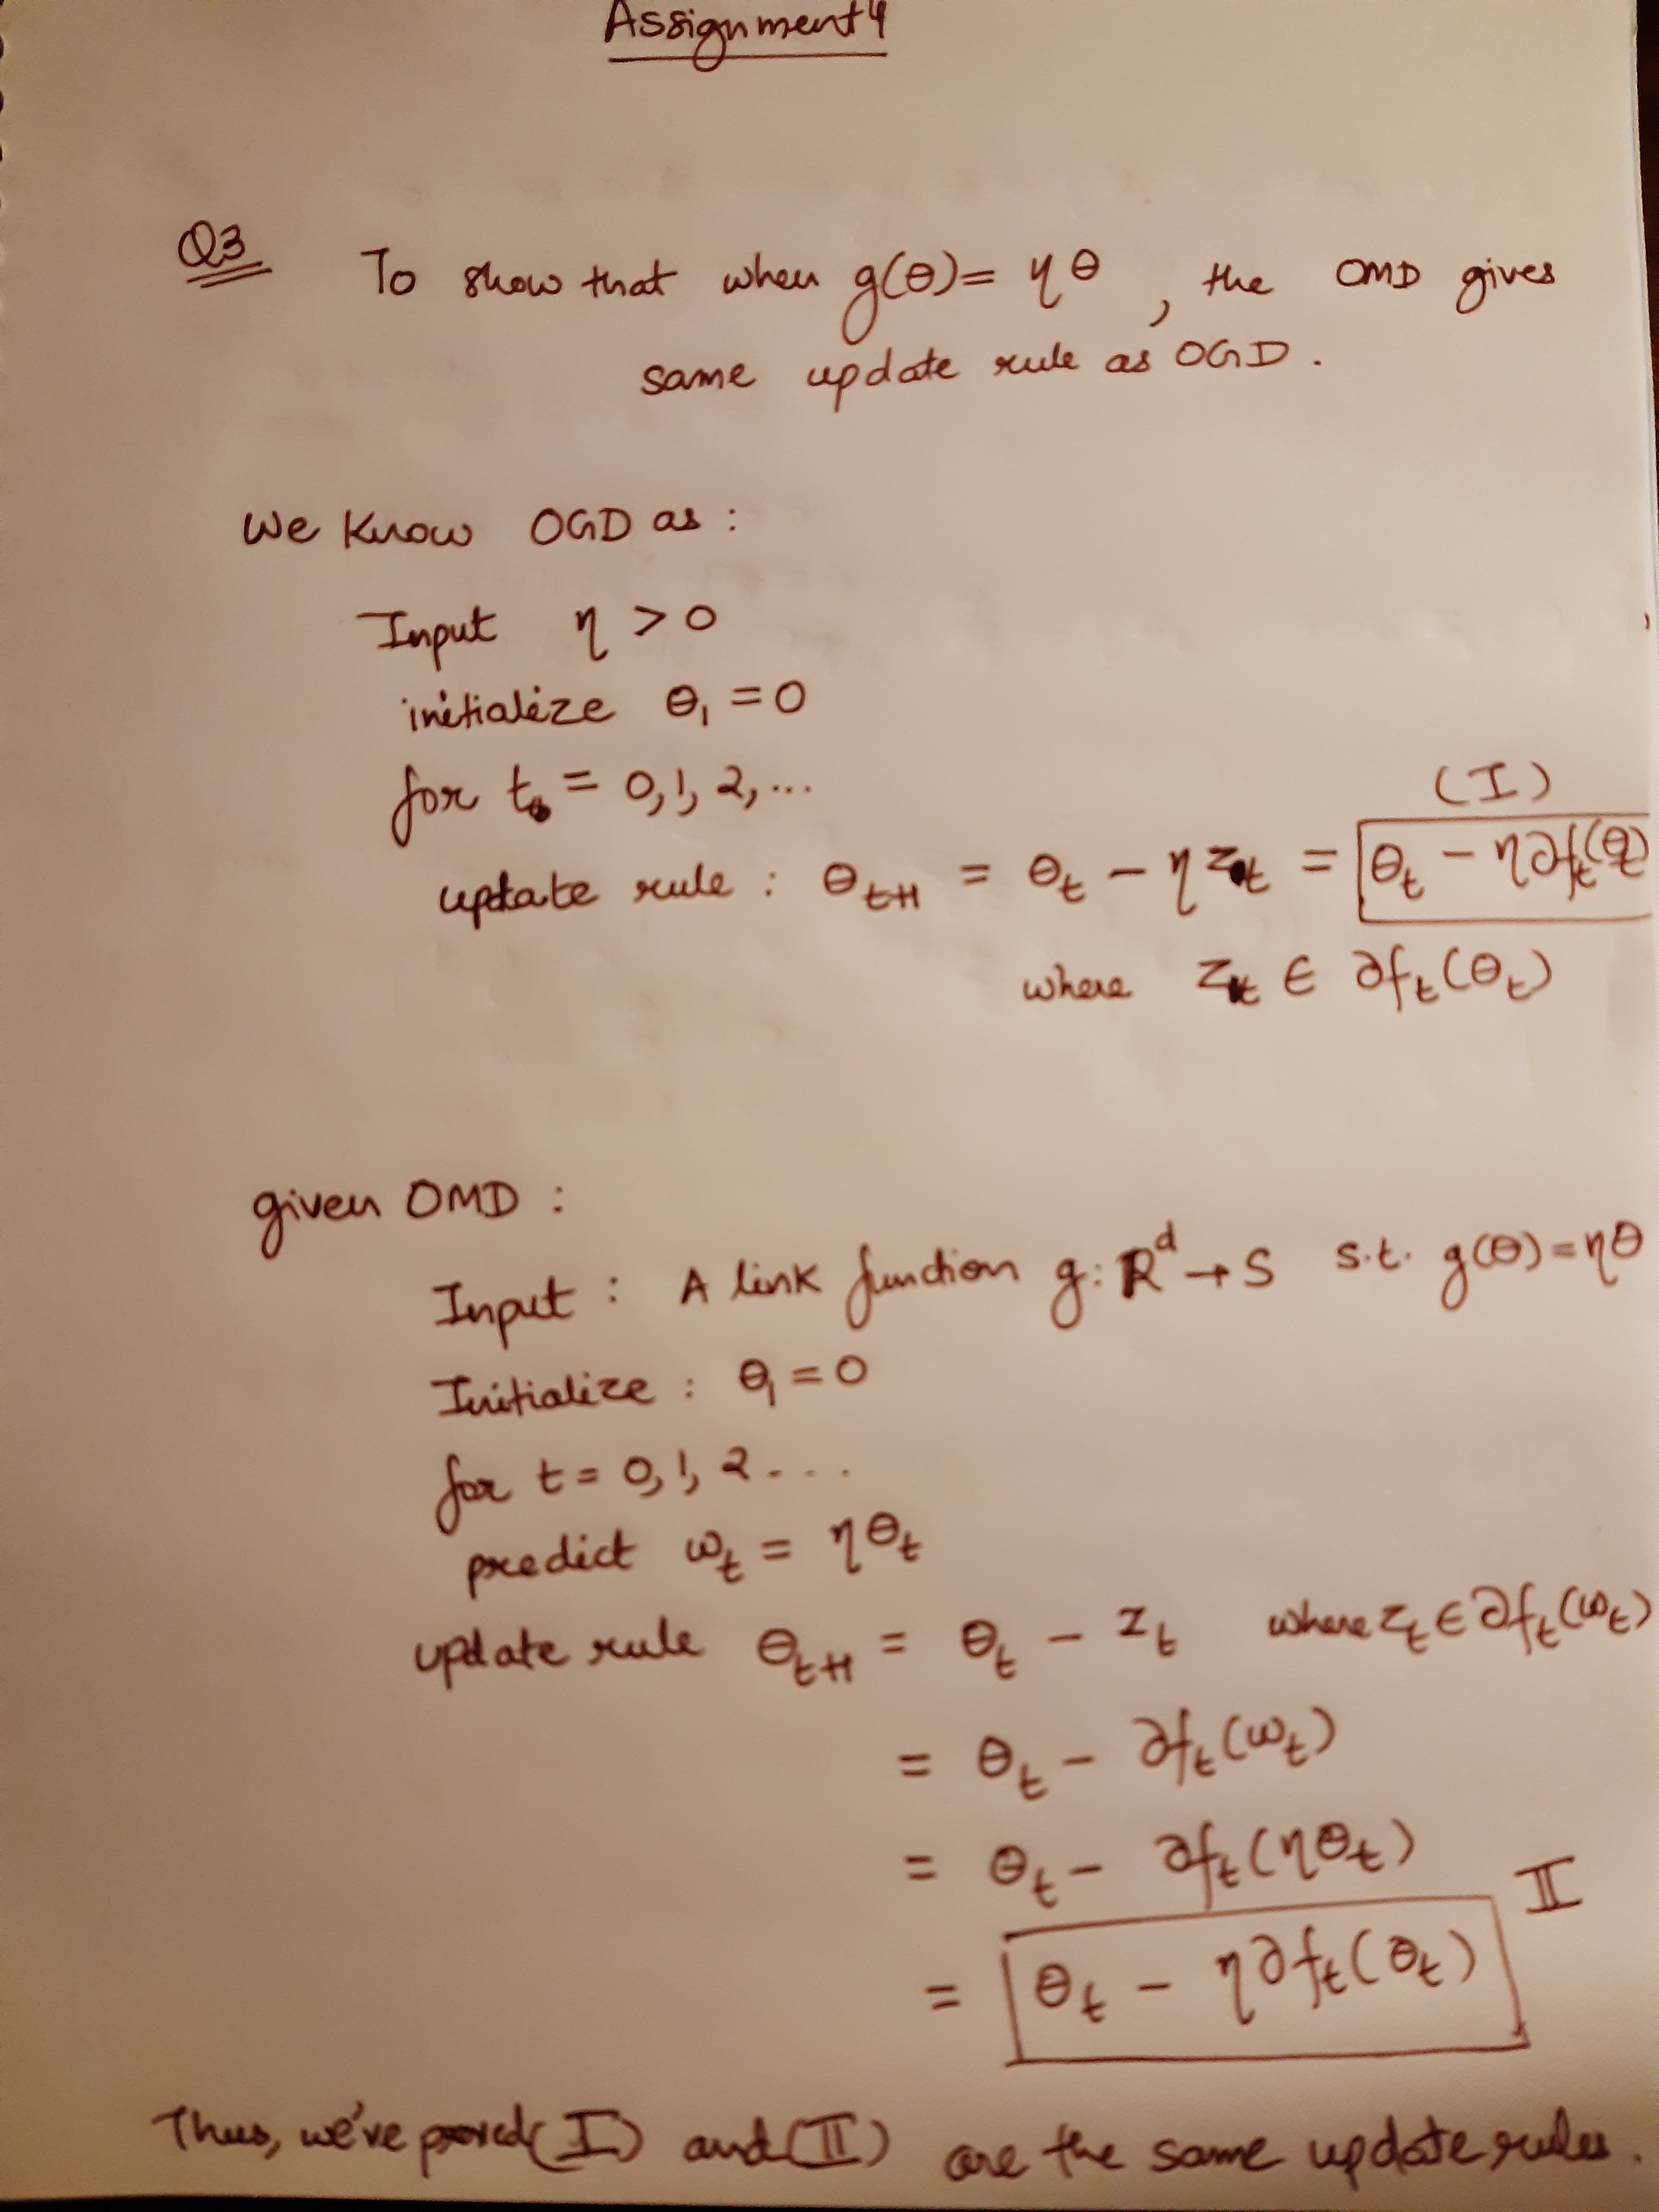 Assignment 4
Q3 To show that when g(θ) = ηθ, the OMD gives
same update rule as OGD.
We know OGD as :
Input η > 0
initialize θ₁ = 0
for t = 0, 1, 2, ...
(I)
update rule : θₜ₊₁ = θₜ − η zₜ = θₜ − η∂fₜ(θₜ)
where zₜ ∈ ∂fₜ(θₜ)
given OMD :
Input : A link function g: ℝᵈ → S s.t. g(θ) = ηθ
Initialize : θ₁ = 0
for t = 0, 1, 2 ....
predict wₜ = ηθₜ
update rule θₜ₊₁ = θₜ − zₜ where zₜ ∈ ∂fₜ(wₜ)
= θₜ − ∂fₜ(wₜ)
= θₜ − ∂fₜ(ηθₜ)
II
= θₜ − η∂fₜ(θₜ)
Thus, we've proved (I) and (II) are the same update rules.